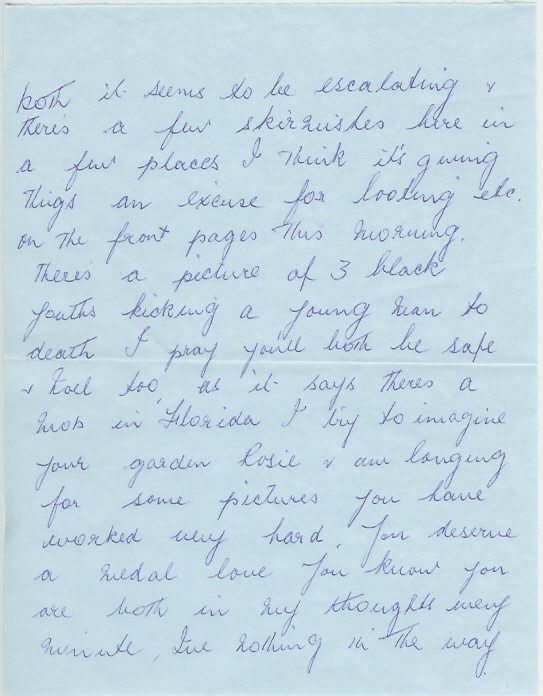 both it seems to be escalating &
There's a few skirmishes here in
a few places I think it's giving
things an excuse for looting etc.
on the front pages this morning.
There's a picture of 3 black
youths kicking a young man to
death I pray you'll both be safe
& Noel too, as it says there's a
mob in Florida I try to imagine
your garden Rosie & am longing
for some pictures you have
worked very hard. You deserve
a medal love You know you
are both in my thoughts every
minute, I've nothing in the way